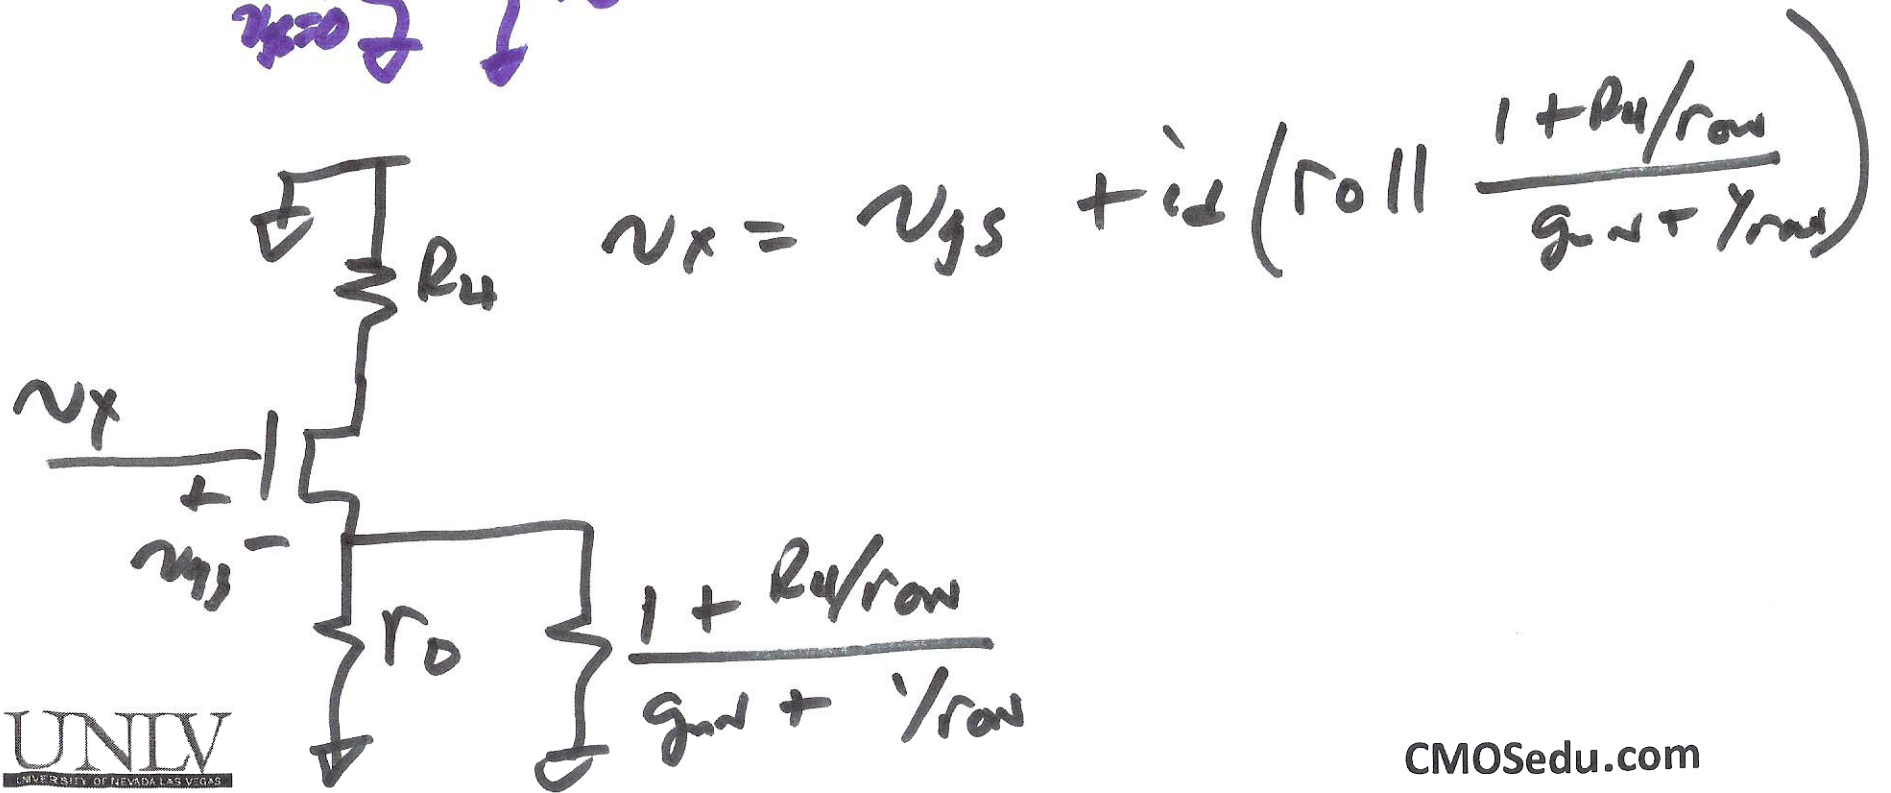 vgs=0
vx = vgs + id (ro || (1 + R4/ron) / (gmn + 1/ron))
R4
vx
+
vgs -
ro
(1 + R4/ron) / (gmn + 1/ron)
UNLV
UNIVERSITY OF NEVADA LAS VEGAS
CMOSedu.com